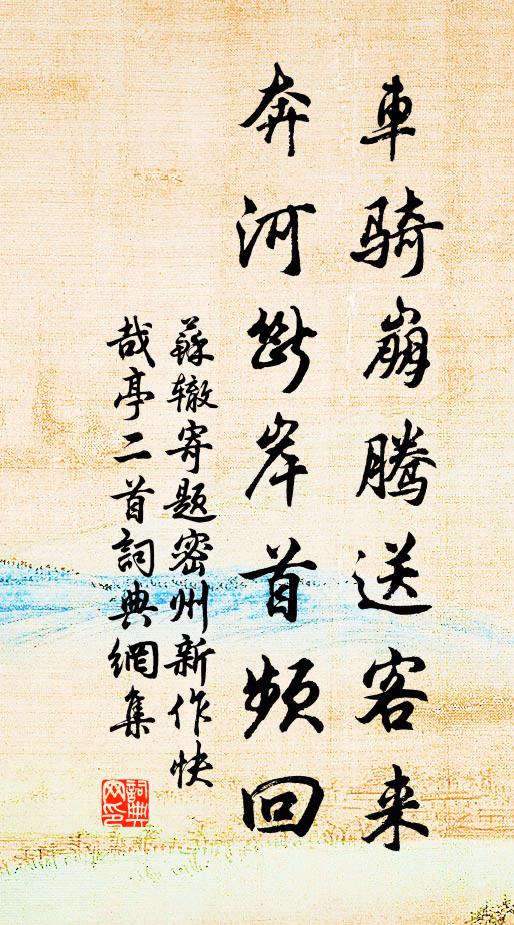 車騎崩騰送客来
奔河断岸首頻回
蘇轍寄題密州新作快
哉亭二首詞典網集
詞典网印